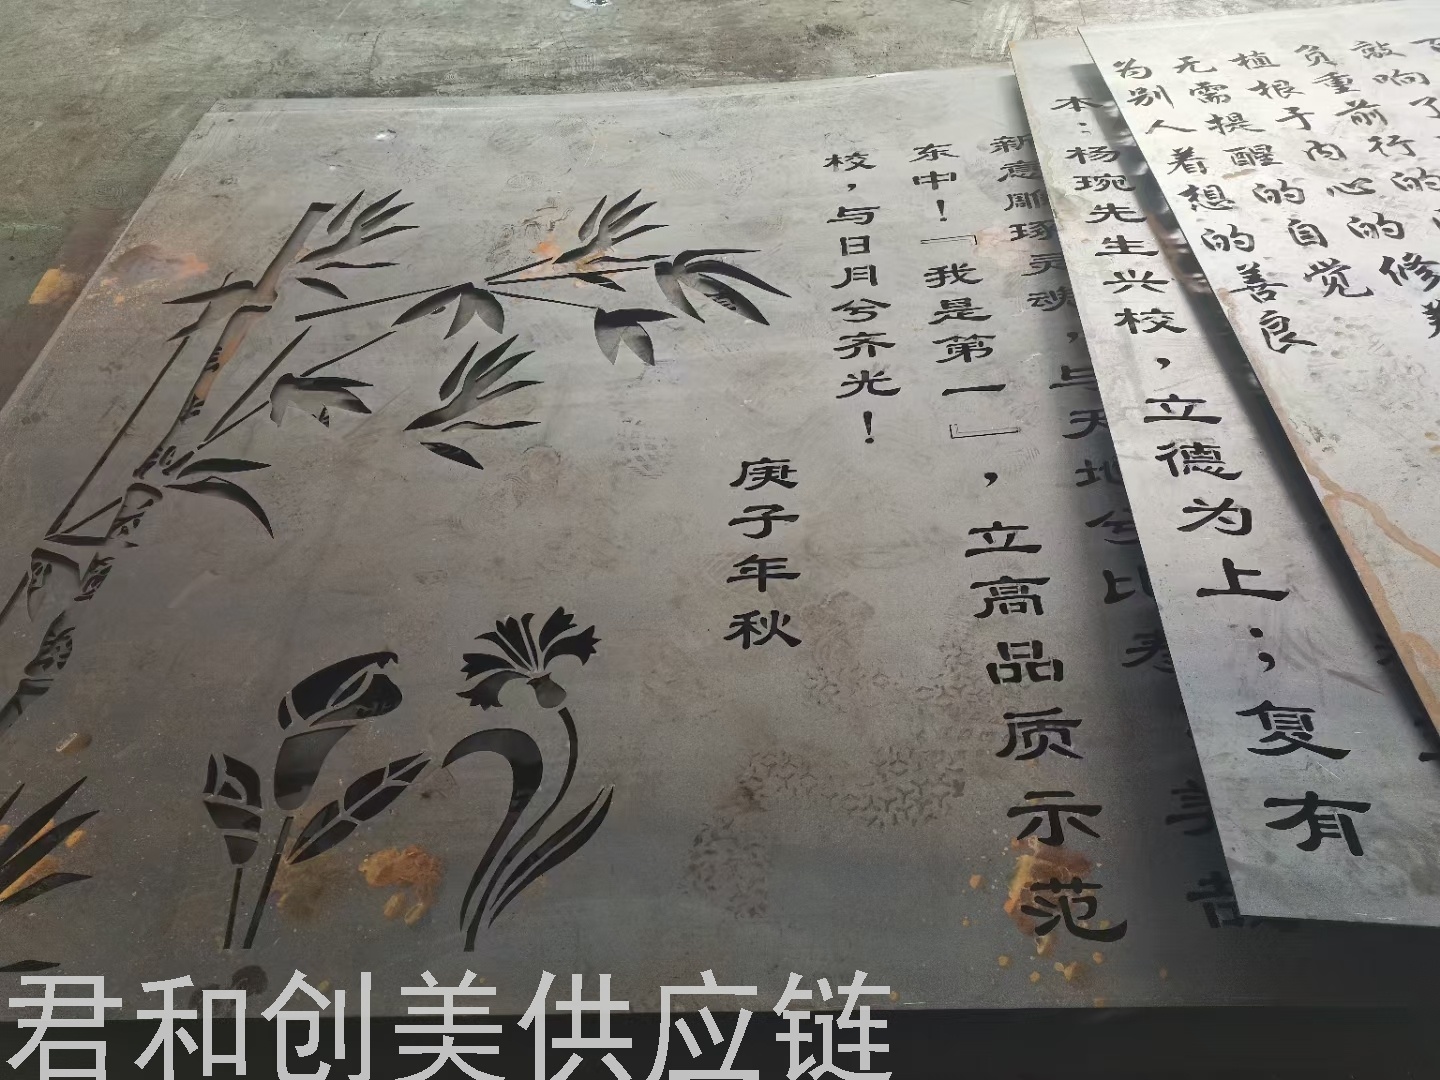 无需提醒的自觉
植根于内心的
负重前行的
敲响了
为别人着想的善良
本；杨琬先生兴校，立德为上；复有
新意雕琢灵魂，与天地兮比寿
东中！「我是第一」，立高品质示范
校，与日月兮齐光！
庚子年秋
君和创美供应链